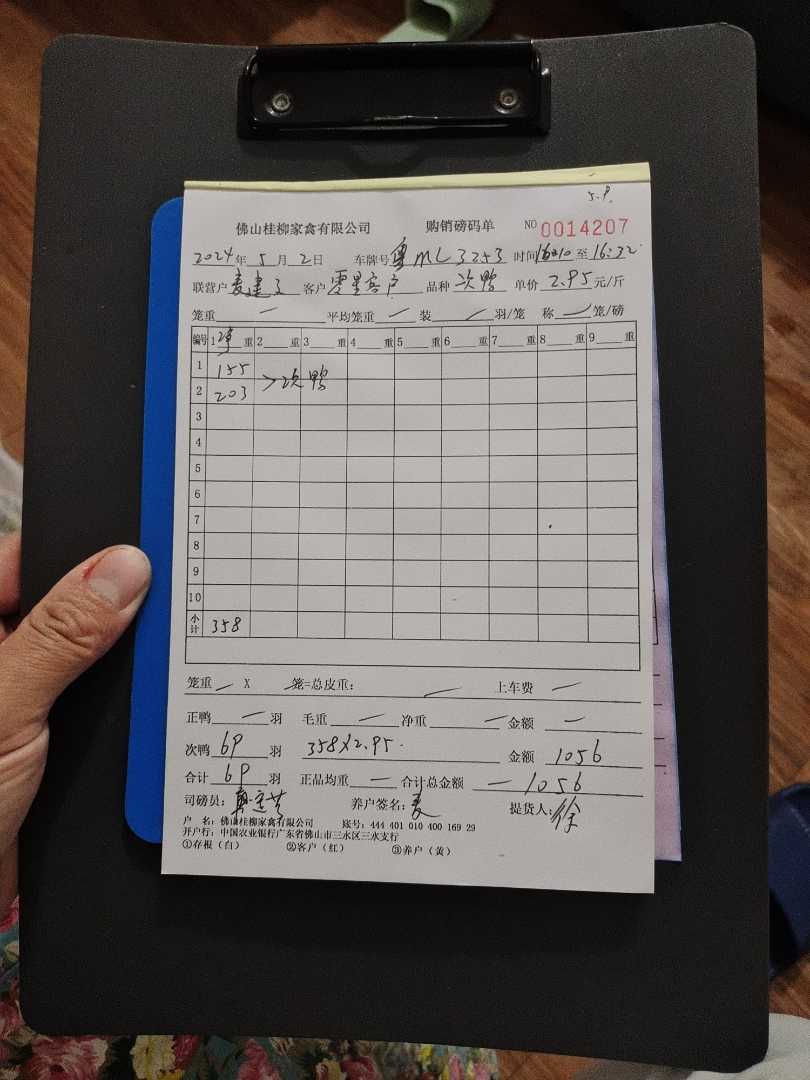 5.9.
佛山桂柳家禽有限公司 购销磅码单 NO 0014207
2024年 5月 2日 车牌号 粤ML3253 时间 16:10 至 16:32
联营户 客户 零星客户 品种 次鸭 单价 2.95 元/斤
笼重 — 平均笼重 — 装 — 羽/笼 称 — 笼/磅
编号 1 净 重 2 重 3 重 4 重 5 重 6 重 7 重 8 重 9 重
1 155
2 203 >次鸭
3
4
5
6
7
8
9
10
小计 358
笼重 — X — 笼=总皮重: — 上车费 —
正鸭 — 羽 毛重 — 净重 — 金额 —
次鸭 69 羽 358X2.95. 金额 1056
合计 69 羽 正品均重 — 合计总金额 — 1056
司磅员: 养户签名: 麦 提货人: 徐
户 名: 佛山桂柳家禽有限公司 账号: 444 401 010 400 169 29
开户行: 中国农业银行广东省佛山市三水区三水支行
①存根(白) ②客户(红) ③养户(黄)